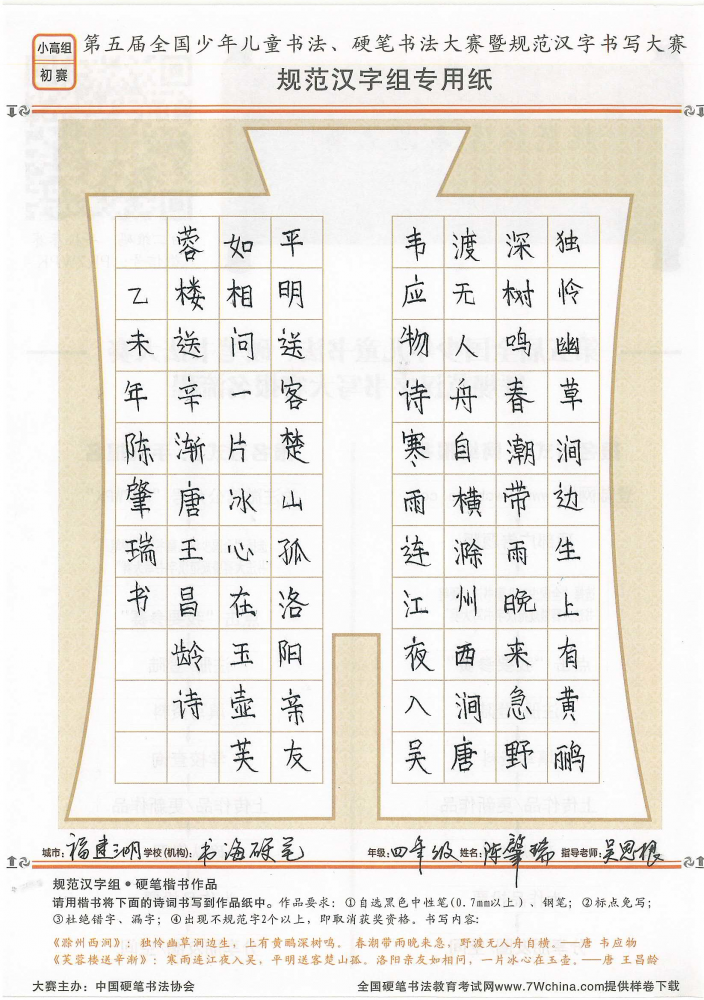 小高组
初赛
第五届全国少年儿童书法、硬笔书法大赛暨规范汉字书写大赛
规范汉字组专用纸
独怜幽草涧边生上有黄鹂
深树鸣春潮带雨晚来急野
渡无人舟自横滁州西涧唐
韦应物诗寒雨连江夜入吴
平明送客楚山孤洛阳亲友
如相问一片冰心在玉壶芙
蓉楼送辛渐唐王昌龄诗
乙未年陈肇瑞书
城市：福建 学校(机构)：书海硬笔 年级：四年级 姓名：陈肇瑞 指导老师：吴思根
规范汉字组•硬笔楷书作品
请用楷书将下面的诗词书写到作品纸中。作品要求：①自选黑色中性笔(0.7mm以上)、钢笔；②标点免写；
③杜绝错字、漏字；④出现不规范字2个以上，即取消获奖资格。书写内容：
《滁州西涧》：独怜幽草涧边生，上有黄鹂深树鸣。春潮带雨晚来急，野渡无人舟自横。——唐 韦应物
《芙蓉楼送辛渐》：寒雨连江夜入吴，平明送客楚山孤。洛阳亲友如相问，一片冰心在玉壶。——唐 王昌龄
大赛主办：中国硬笔书法协会 全国硬笔书法教育考试网www.7Wchina.com提供样卷下载